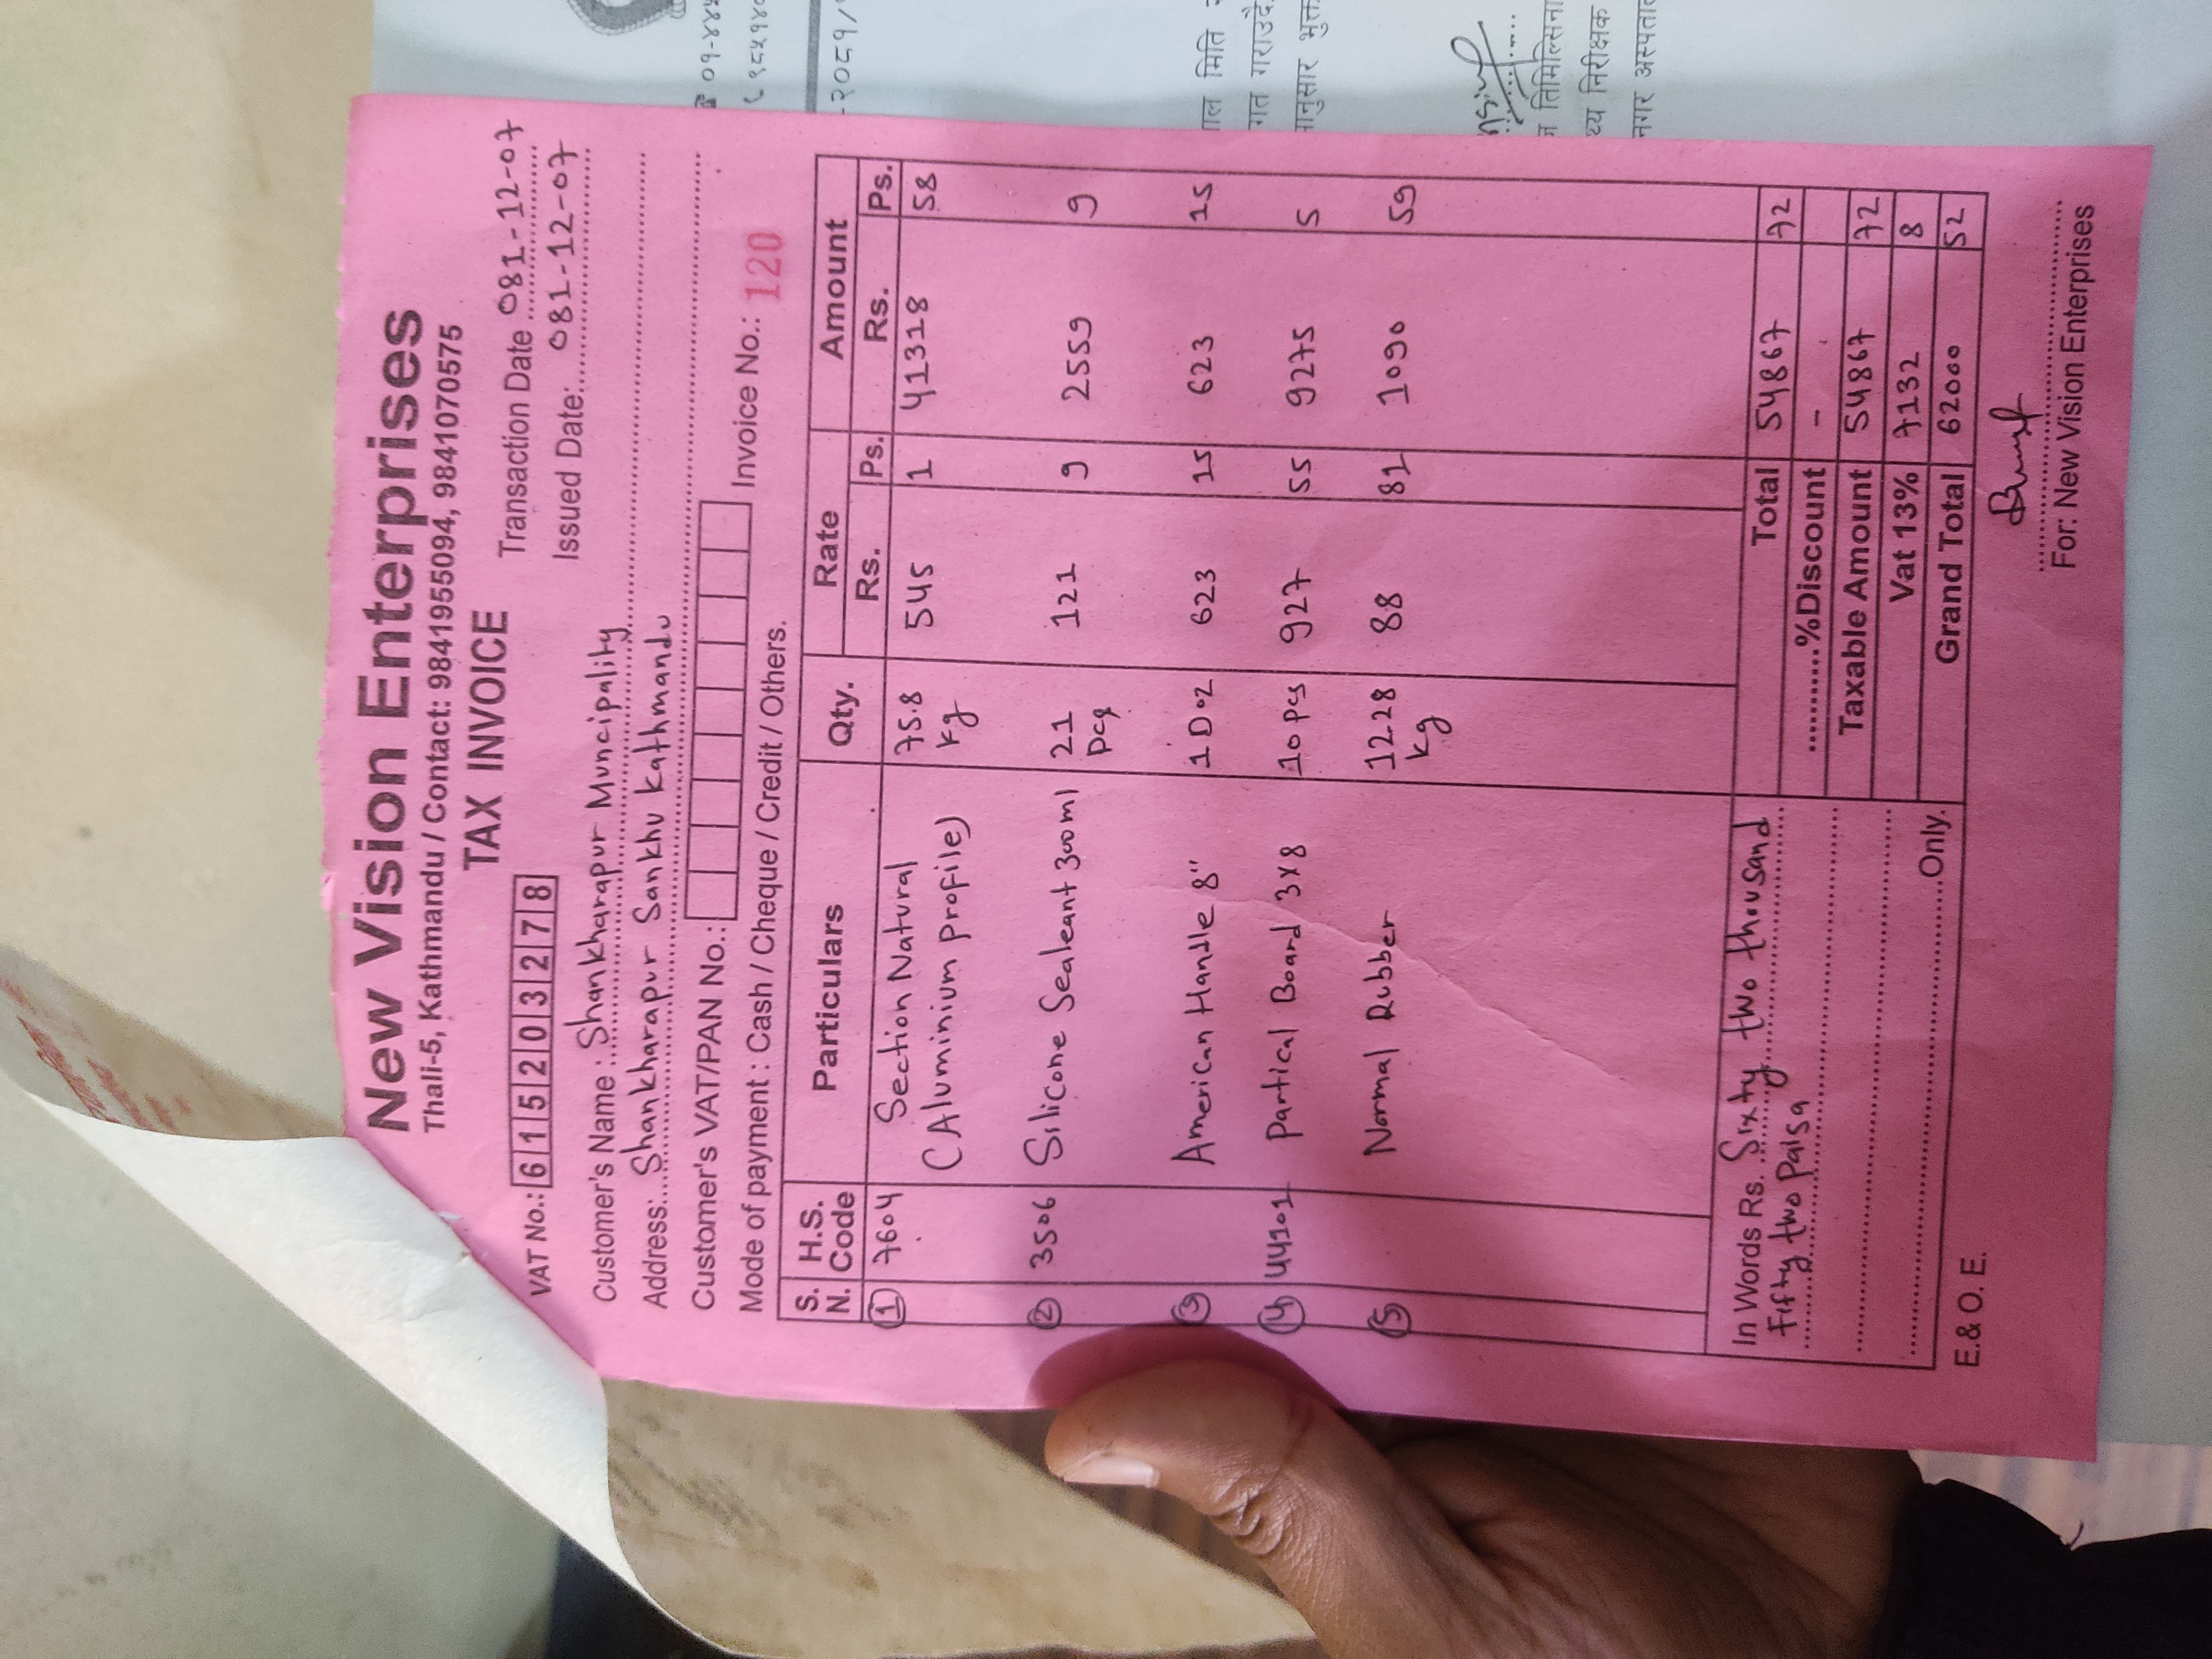 New Vision Enterprises
Thali-5, Kathmandu / Contact: 9841955094, 9841070575
TAX INVOICE
VAT No.: 615203278
Transaction Date 081-12-07
Issued Date: 081-12-07
Customer's Name : Shankharapur Muncipality
Address: Shankharapur Sankhu Kathmandu
Customer's VAT/PAN No.:
Invoice No.: 120
Mode of payment : Cash / Cheque / Credit / Others.
S. N. H.S. Code Particulars Qty. Rate Rs. Ps. Amount Rs. Ps.
1 7604 Section Natural 75.8 545 1 41318 58
(Aluminium Profile) kg
2 3506 Silicone Sealeant 300ml 21 121 9 2559 9
Pcs
3 American Handle 8" 1 Doz 623 15 623 15
4 44101 Partical Board 3x8 10 pcs 927 55 9275 5
5 Normal Rubber 12.28 88 81 1090 59
kg
In Words Rs. Sixty two thousand
Fifty two Paisa
Only.
Total 54867 72
%Discount -
Taxable Amount 54867 72
Vat 13% 7132 8
Grand Total 62000 52
E.& O. E.
For: New Vision Enterprises
-२०८१/
मिति
गराउदै
तिमिल्सिना
निरीक्षक
नगर